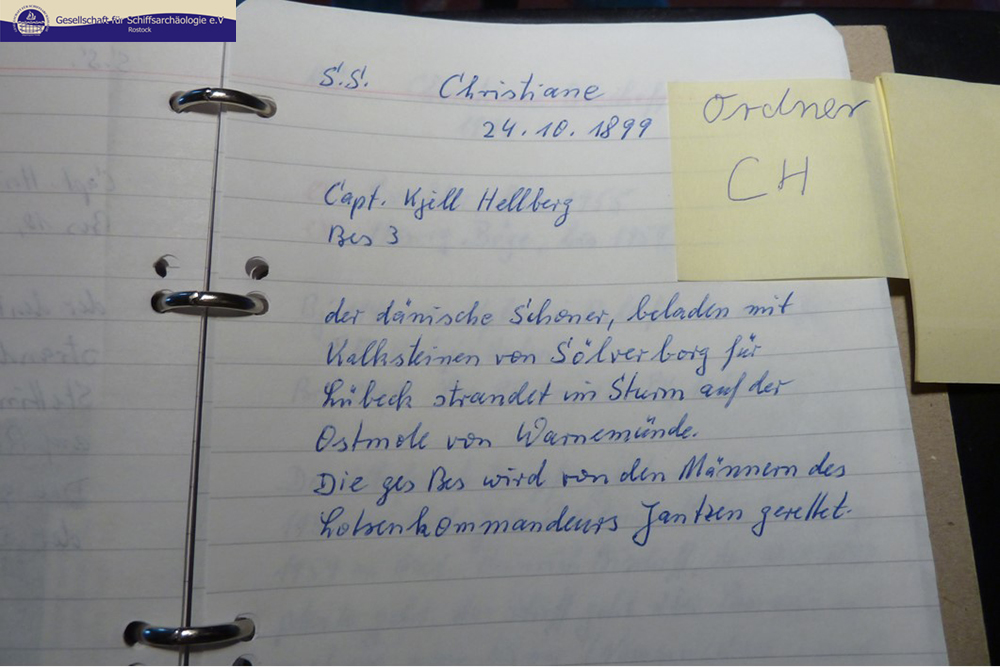 Gesellschaft für Schiffsarchäologie e.V
Rostock
S.S. Christiane
24.10.1899
Capt. Kjill Hellberg
Bes 3
der dänische Schoner, beladen mit
Kalksteinen von Sölverborg für
Lübeck strandet im Sturm auf der
Ostmole von Warnemünde.
Die ges Bes wird von den Männern des
Lotsenkommandeurs Jantzen gerettet.
Ordner
CH